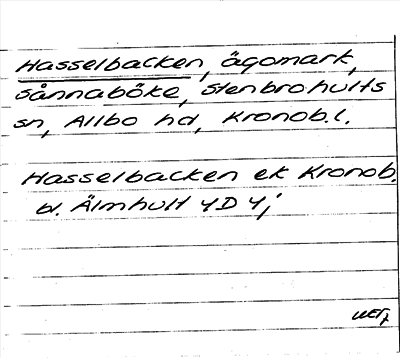 Hasselbacken, ägomark,
Sånnaböke, Stenbrohults
sn, Allbo hd, Kronob.l.
Hasselbacken ek Kronob.
bl. Älmhult 4D 4j